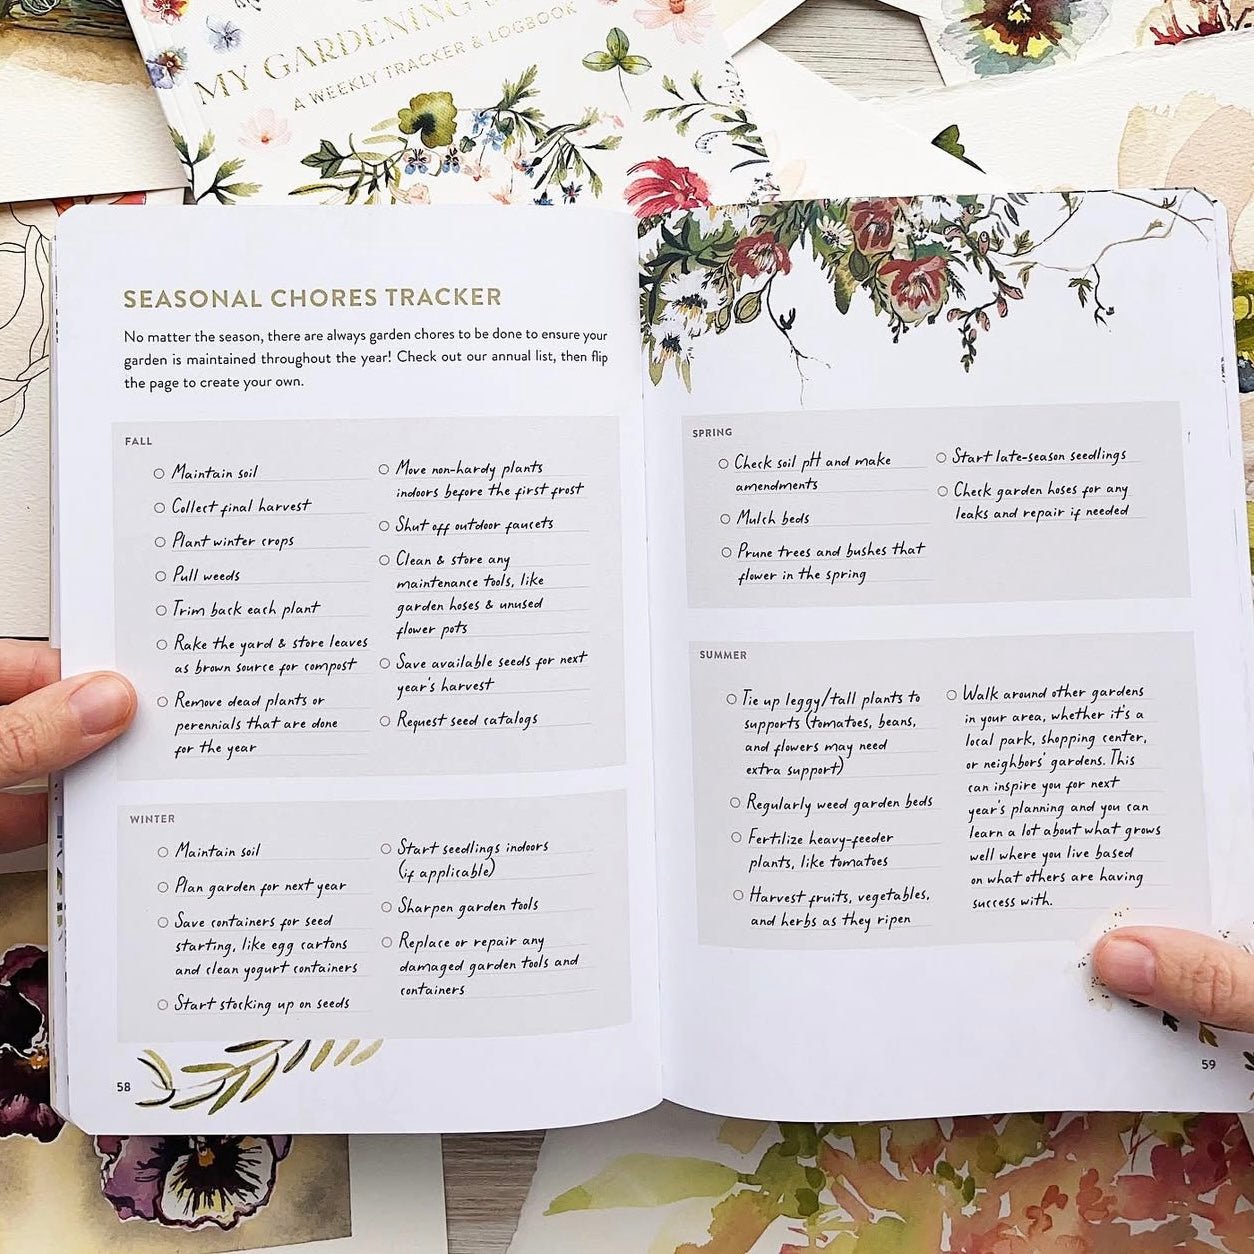 MY GARDENING
A WEEKLY TRACKER & LOGBOOK
SEASONAL CHORES TRACKER
No matter the season, there are always garden chores to be done to ensure your
garden is maintained throughout the year! Check out our annual list, then flip
the page to create your own.
FALL
Maintain soil
Collect final harvest
Plant winter crops
Pull weeds
Trim back each plant
Rake the yard & store leaves
as brown source for compost
Remove dead plants or
perennials that are done
for the year
Move non-hardy plants
indoors before the first frost
Shut off outdoor faucets
Clean & store any
maintenance tools, like
garden hoses & unused
flower pots
Save available seeds for next
year's harvest
Request seed catalogs
WINTER
Maintain soil
Plan garden for next year
Save containers for seed
starting, like egg cartons
and clean yogurt containers
Start stocking up on seeds
Start seedlings indoors
(if applicable)
Sharpen garden tools
Replace or repair any
damaged garden tools and
containers
58
SPRING
Check soil pH and make
amendments
Mulch beds
Prune trees and bushes that
flower in the spring
Start late-season seedlings
Check garden hoses for any
leaks and repair if needed
SUMMER
Tie up leggy/tall plants to
supports (tomatoes, beans,
and flowers may need
extra support)
Regularly weed garden beds
Fertilize heavy-feeder
plants, like tomatoes
Harvest fruits, vegetables,
and herbs as they ripen
Walk around other gardens
in your area, whether it's a
local park, shopping center,
or neighbors' gardens. This
can inspire you for next
year's planning and you can
learn a lot about what grows
well where you live based
on what others are having
success with.
59